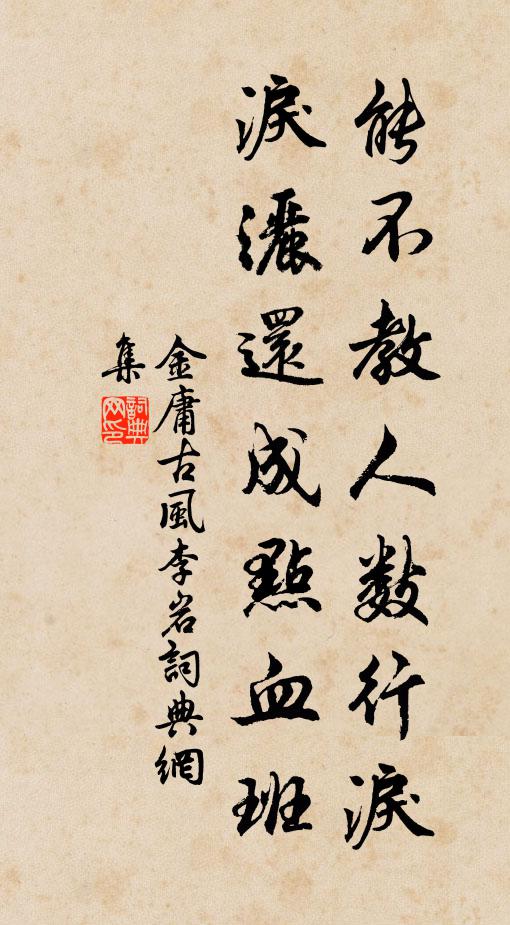 能不教人数行淚
淚灑還成點血班
金庸古風李岩詞典網
集
詞典
网印